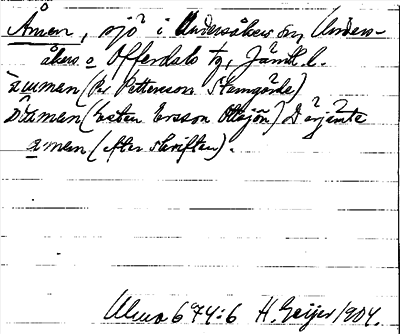 Ånnen, sjö i Undersåkers sn, Unders-
åkers o Offerdals tg, Jämtl. l.
(Per Pettersson Stamgärde)
(Esten Ersson Ottsjön) Därjämte
(efter skriften).
Ulma 674:6 H. Geijer 1904.